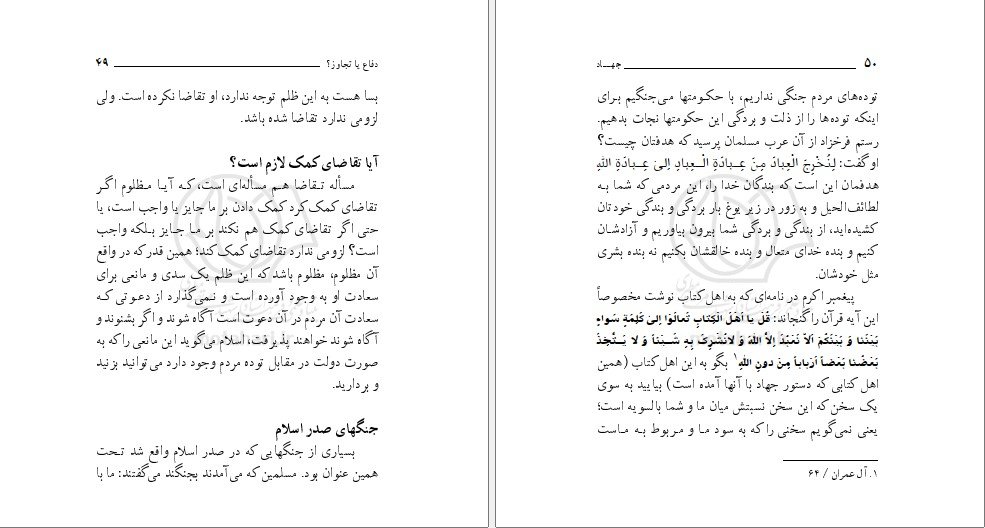 دفاع یا تجاوز؟ ۴۹
بسا هست به این ظلم توجه ندارد، او تقاضا نکرده است. ولی
لزومی ندارد تقاضا شده باشد.
آیا تقاضای کمک لازم است؟
مسأله تقاضا هم مسأله‌ای است، که آیا مظلوم اگر
تقاضای کمک کرد کمک دادن بر ما جایز یا واجب است، یا
حتی اگر تقاضای کمک هم نکند بر ما جایز بلکه واجب
است؟ لزومی ندارد تقاضای کمک کند؛ همین قدر که در واقع
آن مظلوم، مظلوم باشد که این ظلم یک سدی و مانعی برای
سعادت او به وجود آورده است و نمی‌گذارد از دعوتی که
سعادت آن مردم در آن دعوت است آگاه شوند و اگر بشنوند و
آگاه شوند خواهند پذیرفت، اسلام می‌گوید این مانعی را که به
صورت دولت در مقابل توده مردم وجود دارد می‌توانید بزنید
و بردارید.
جنگهای صدر اسلام
بسیاری از جنگهایی که در صدر اسلام واقع شد تحت
همین عنوان بود. مسلمین که می‌آمدند بجنگند می‌گفتند: ما با
۵۰ جهاد
توده‌های مردم جنگی نداریم، با حکومتها می‌جنگیم برای
اینکه توده‌ها را از ذلت و بردگی این حکومتها نجات بدهیم.
رستم فرخزاد از آن عرب مسلمان پرسید که هدفتان چیست؟
او گفت: لِنُخْرِجَ الْعِبادَ مِنْ عِبادَةِ الْعِبادِ اِلیٰ عِبادَةِ اللهِ
هدفمان این است که بندگان خدا را، این مردمی که شما به
لطائف‌الحیل و به زور در زیر یوغ بار بردگی و بندگی خودتان
کشیده‌اید، از بندگی و بردگی شما بیرون بیاوریم و آزادشان
کنیم و بنده خدای متعال و بنده خالقشان بکنیم نه بنده بشری
مثل خودشان.
پیغمبر اکرم در نامه‌ای که به اهل کتاب نوشت مخصوصاً
این آیه قرآن را گنجاند: قُلْ یا اَهْلَ الْکِتابِ تَعالَوْا اِلیٰ کَلِمَةٍ سَواءٍ
بَیْنَنا وَ بَیْنَکُمْ اَلاّ نَعْبُدَ اِلاَّ اللهَ وَ لانُشْرِکَ بِهِ شَیْئاً وَ لا یَتَّخِذَ
بَعْضُنا بَعْضاً اَرْباباً مِنْ دونِ اللهِ۱ بگو به این اهل کتاب (همین
اهل کتابی که دستور جهاد با آنها آمده است) بیایید به سوی
یک سخن که این سخن نسبتش میان ما و شما بالسویه است؛
یعنی نمی‌گویم سخنی را که به سود ما و مربوط به ماست
۱. آل عمران / ۶۴